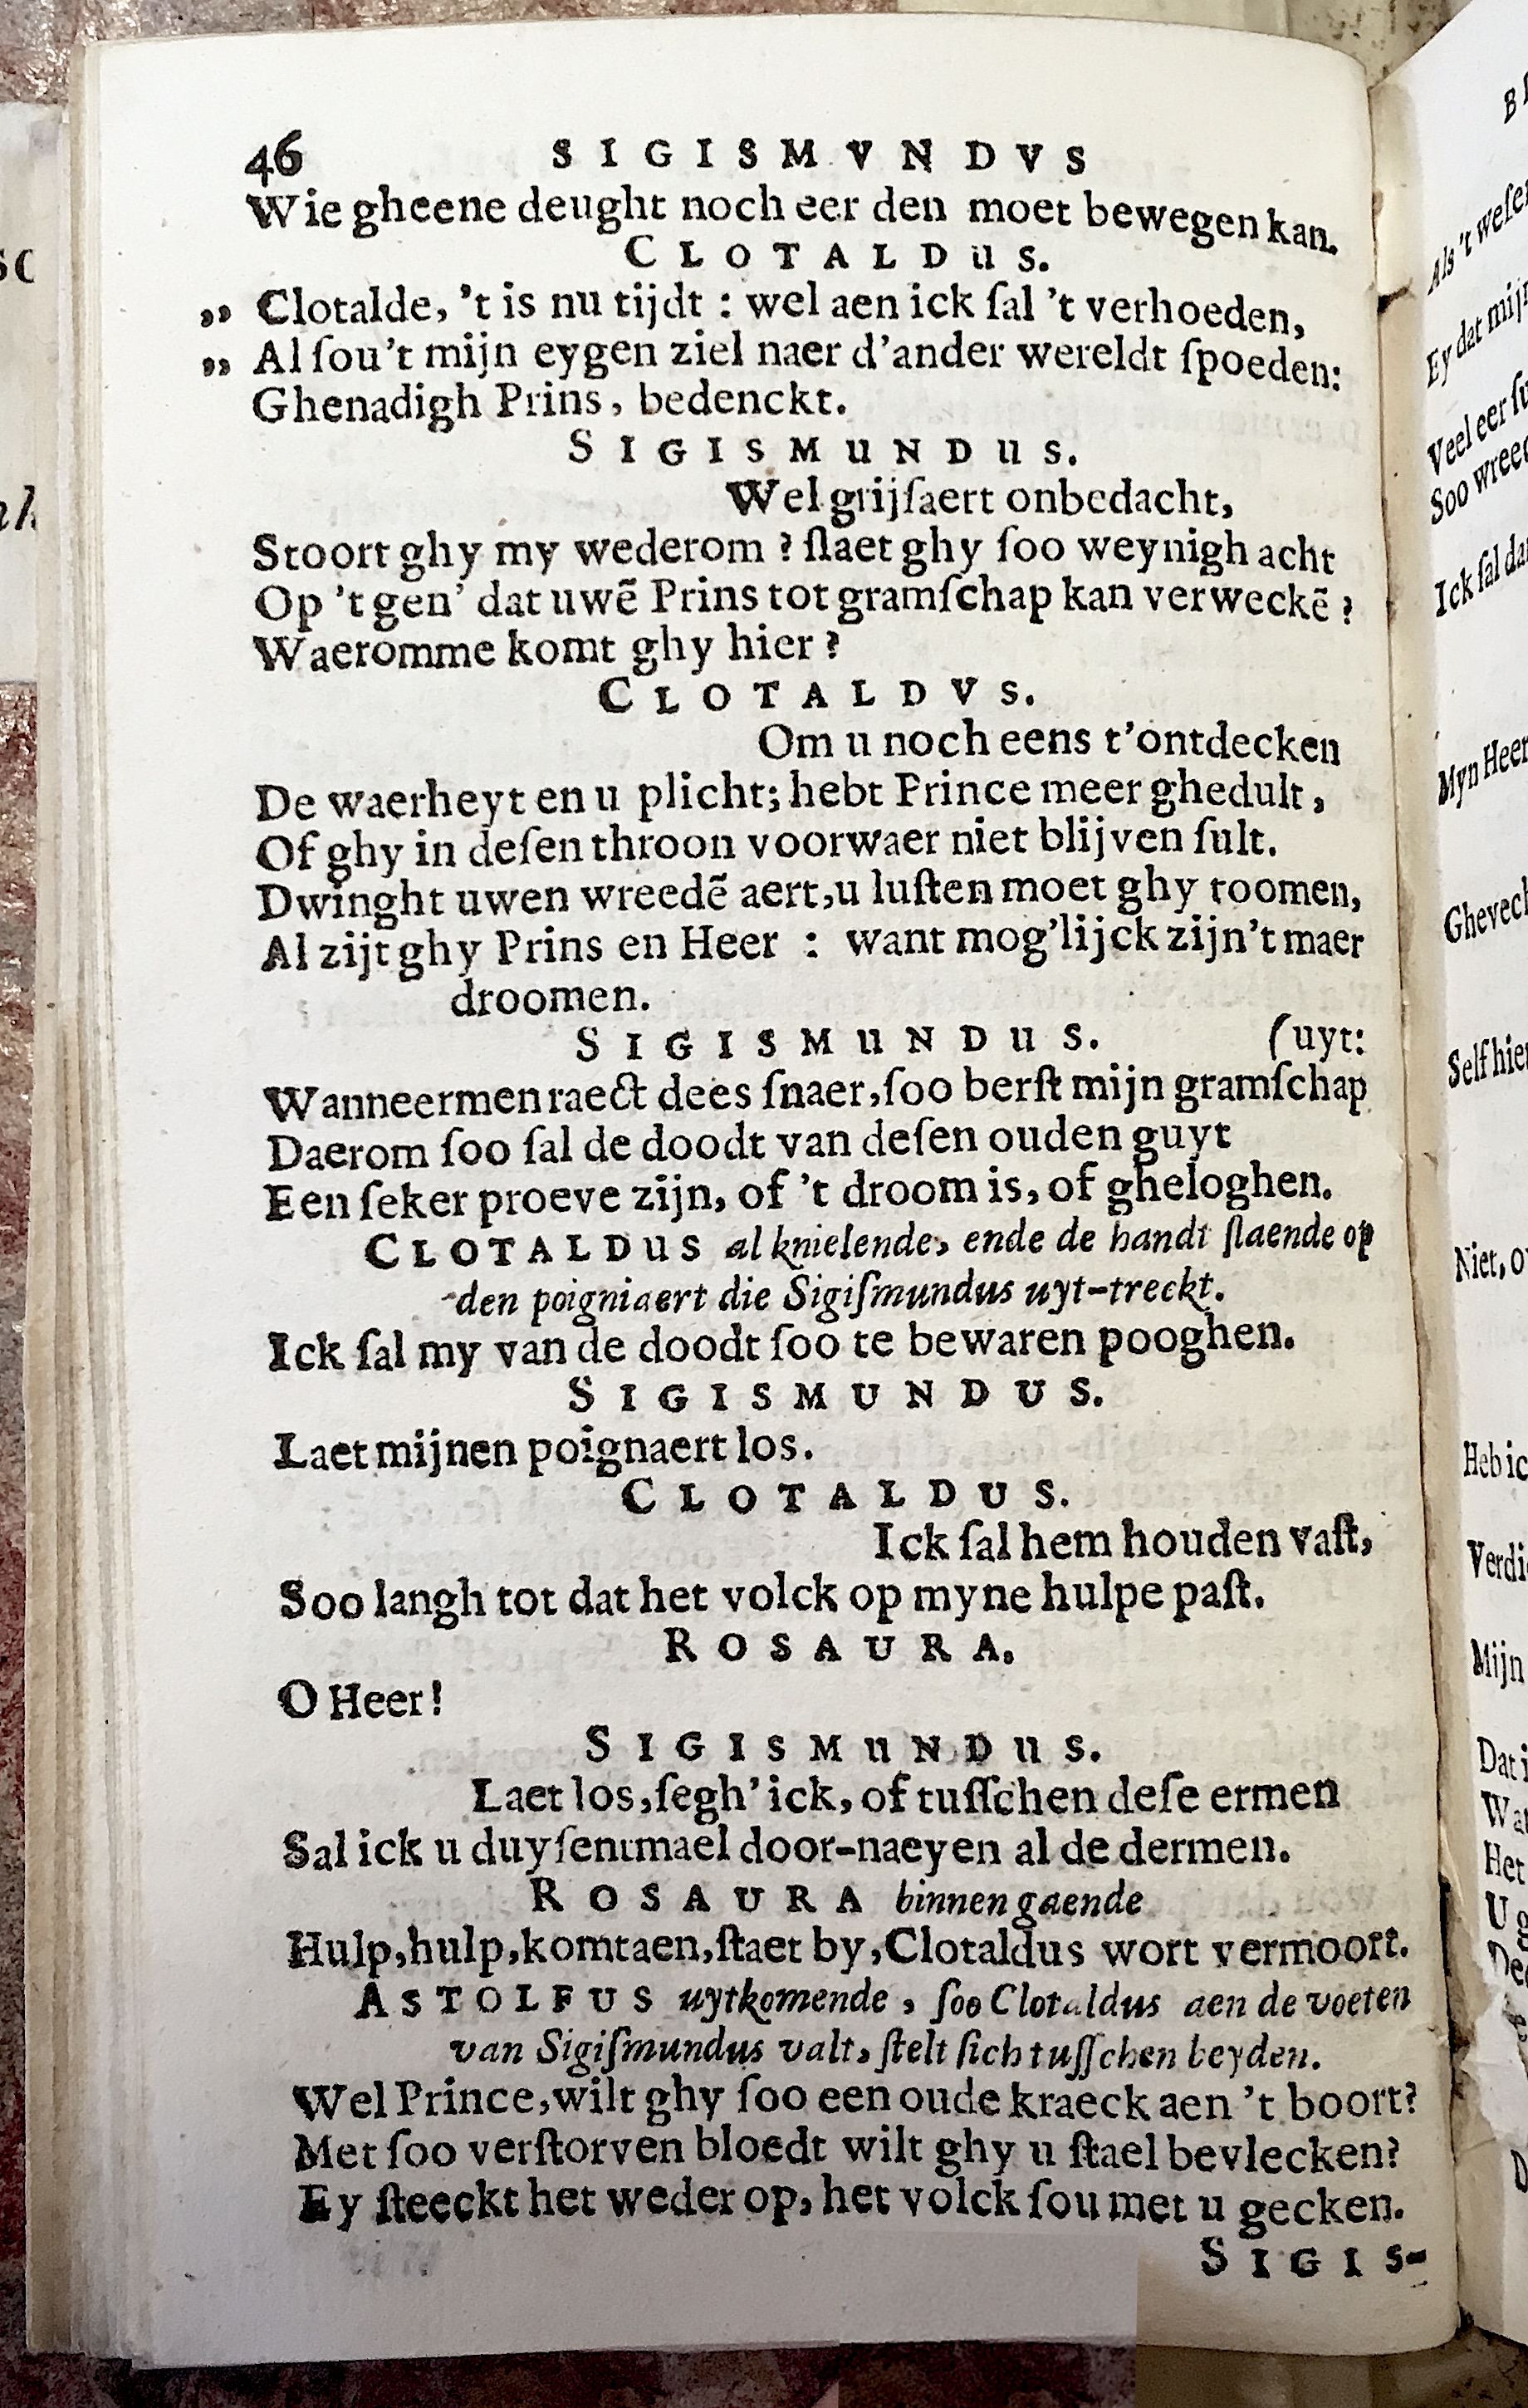 46 SIGISMVNDVS
Wie gheene deught noch eer den moet bewegen kan.
CLOTALDUS.
„ Clotalde, 't is nu tijdt : wel aen ick ſal 't verhoeden,
„ Al ſou't mijn eygen ziel naer d'ander wereldt ſpoeden:
Ghenadigh Prins, bedenckt.
SIGISMUNDUS.
Wel grijſaert onbedacht,
Stoort ghy my wederom ? ſlaet ghy ſoo weynigh acht
Op 't gen' dat uwẽ Prins tot gramſchap kan verweckẽ ?
Waeromme komt ghy hier ?
CLOTALDVS.
Om u noch eens t'ontdecken
De waerheyt en u plicht; hebt Prince meer ghedult,
Of ghy in deſen throon voorwaer niet blijven ſult.
Dwinght uwen wreedẽ aert,u luſten moet ghy toomen,
Al zijt ghy Prins en Heer : want mog'lijck zijn't maer
droomen.
SIGISMUNDUS. (uyt:
Wanneermen raeckt dees ſnaer,ſoo berſt mijn gramſchap
Daerom ſoo ſal de doodt van deſen ouden guyt
Een ſeker proeve zijn, of 't droom is, of gheloghen.
CLOTALDUS al knielende, ende de handt ſlaende op
den poigniaert die Sigiſmundus uyt-treckt.
Ick ſal my van de doodt ſoo te bewaren pooghen.
SIGISMUNDUS.
Laet mijnen poignaert los.
CLOTALDUS.
Ick ſal hem houden vaſt,
Soo langh tot dat het volck op myne hulpe paſt.
ROSAURA.
O Heer!
SIGISMUNDUS.
Laet los,ſegh' ick, of tuſſchen deſe ermen
Sal ick u duyſentmael door-naeyen al de dermen.
ROSAURA binnen gaende
Hulp,hulp,komt aen,ſtaet by,Clotaldus wort vermoort.
ASTOLFUS uytkomende, ſoo Clotaldus aen de voeten
van Sigiſmundus valt, ſtelt ſich tuſſchen beyden.
Wel Prince,wilt ghy ſoo een oude kraeck aen 't boort?
Met ſoo verſtorven bloedt wilt ghy u ſtael bevlecken?
Ey ſteeckt het weder op, het volck ſou met u gecken.
SIGIS-
Als 't
Ey dat
Veel eer
Soo
Ick ſal
Myn Heer
Self
Niet,
Heb
Mijn
Dat
Het
U